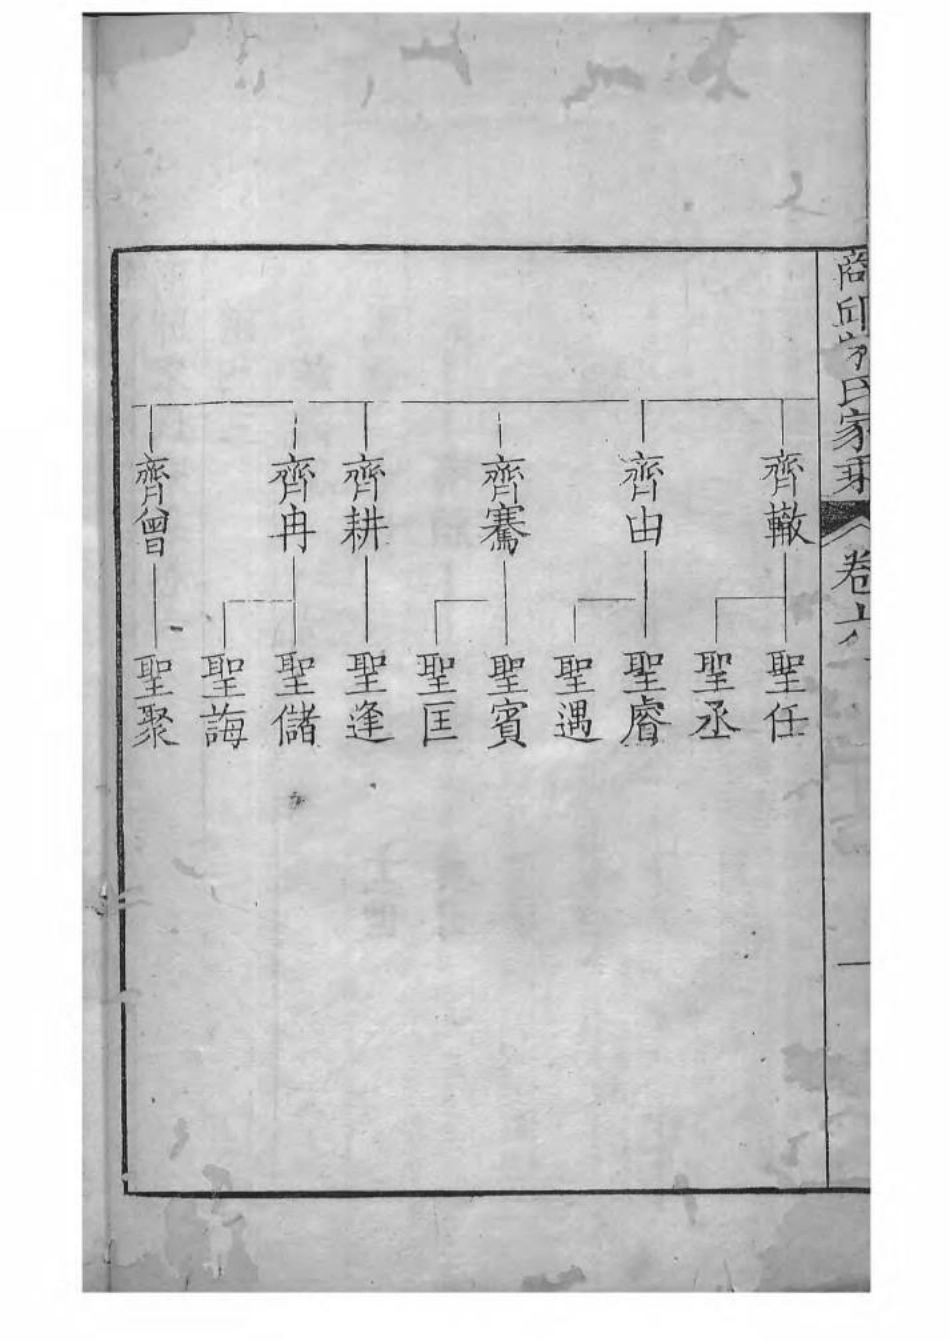 商邱宋氏家乘
卷六
一
齊轍
齊由
齊騫
齊耕
齊冉
齊曾
聖任
聖丞
聖睿
聖遇
聖賓
聖匡
聖逢
聖儲
聖誨
聖聚